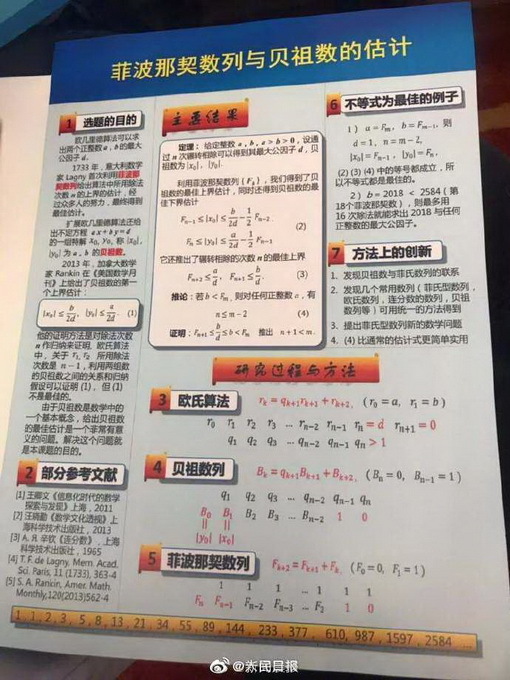 菲波那契数列与贝祖数的估计
1 选题的目的
欧几里德算法可以求
出两个正整数 a , b 的最大
公因子 d .
1733 年，意大利数学
家 Lagny 首次利用菲波那
契数列给出算法中所用除法
次数 n 的上界的估计，经
过众多人的努力，最终得到
最佳估计。
扩展欧几里德算法还给
出不定方程 ax + by = d
的一组特解 x₀, y₀, 称 |x₀|,
|y₀| 为 a, b 的贝祖数。
2013 年，加拿大数学
家 Rankin 在《美国数学月
刊》上给出了贝祖数的第一
个上界估计：
|x₀| ≤ b/2d, |y₀| ≤ a/2d (1)
他的证明方法是对除法次数
n 作归纳来证明. 欧氏算法
中，关于 r₁, r₂ 所用除法
次数是 n − 1，利用两组数
的贝祖数之间的关系和归纳
假设可以证明 (1)．但 (1)
不是最佳的。
由于贝祖数是数学中的
一个基本概念，给出贝祖数
的最佳估计是一个非常有意
义的问题。解决这个问题就
是本课题的目的。
2 部分参考文献
[1] 王卿文《信息化时代的数学
探索与发现》上海，2011
[2] 汪晓勤《数学文化透视》上
海科学技术出版社，2013
[3] А. Я. 辛钦《连分数》，上海
科学技术出版社，1965
[4] T. F. de Lagny. Mem. Acad.
Sci. Paris, 11 (1733), 363-4
[5] S. A. Rankin, Amer. Math.
Monthly,120(2013)562-4
主要结果
定理：给定整数 a, b, a > b > 0，设通
过 n 次辗转相除可以得到其最大公因子 d，贝
祖数为 |x₀|, |y₀|.
利用菲波那契数列 { Fₖ }，我们得到了贝
祖数的最佳上界估计，同时还得到贝祖数的最
佳下界估计
Fₙ₋₁ ≤ |x₀| ≤ b/2d − 1/2 Fₙ₋₂
(2)
Fₙ ≤ |y₀| ≤ a/2d − 1/2 Fₙ₋₁
它还推出了辗转相除的次数 n 的最佳上界
Fₙ₊₂ ≤ a/d, Fₙ₊₁ ≤ b/d. (3)
推论：若 b < Fₘ，则对任何正整数 a，有
n ≤ m − 2 (4)
证明：Fₙ₊₁ ≤ b/d ≤ b < Fₘ 推出 n + 1 < m.
6 不等式为最佳的例子
1 ) a = Fₘ, b = Fₘ₋₁, 则
d = 1, n = m − 2,
|x₀| = Fₙ₋₁, |y₀| = Fₙ,
(2) (3) (4) 中的等号都成立，所
以不等式都是最佳的。
2 ) b = 2018 < 2584 ( 第
18个菲波那契数)，则最多用
16 次除法就能求出 2018 与任何
正整数的最大公因子。
7 方法上的创新
1. 发现贝祖数与菲氏数列的联系
2. 发现几个常用数列（菲氏型数列，
欧氏数列，连分数的数列，贝祖
数列等）可用统一的方法得到
3. 提出菲氏型数列新的数学问题
4. (4) 比通常的估计式更简单实用
研究过程与方法
3 欧氏算法 rₖ = qₖ₊₁rₖ₊₁ + rₖ₊₂, ( r₀ = a, r₁ = b )
r₀ r₁ r₂ r₃ ... rₙ₋₂ rₙ₋₁ rₙ = d rₙ₊₁ = 0
q₁ q₂ q₃ ... qₙ₋₂ qₙ₋₁ qₙ > 1
4 贝祖数列 Bₖ = qₖ₊₁Bₖ₊₁ + Bₖ₊₂, ( Bₙ = 0, Bₙ₋₁ = 1 )
q₁ q₂ q₃ ... qₙ₋₂ qₙ₋₁ qₙ
B₀ B₁ B₂ B₃ ... Bₙ₋₂ 1 0
|| ||
|y₀| |x₀|
5 菲波那契数列 Fₖ₊₂ = Fₖ₊₁ + Fₖ, ( F₀ = 0, F₁ = 1 )
1 1 1 ... 1 1 1
Fₙ Fₙ₋₁ Fₙ₋₂ Fₙ₋₃ ... F₂ 1 0
1, 1, 2, 3, 5, 8, 13, 21, 34, 55, 89, 144, 233, 377, 610, 987, 1597, 2584 ...
@新民晨报